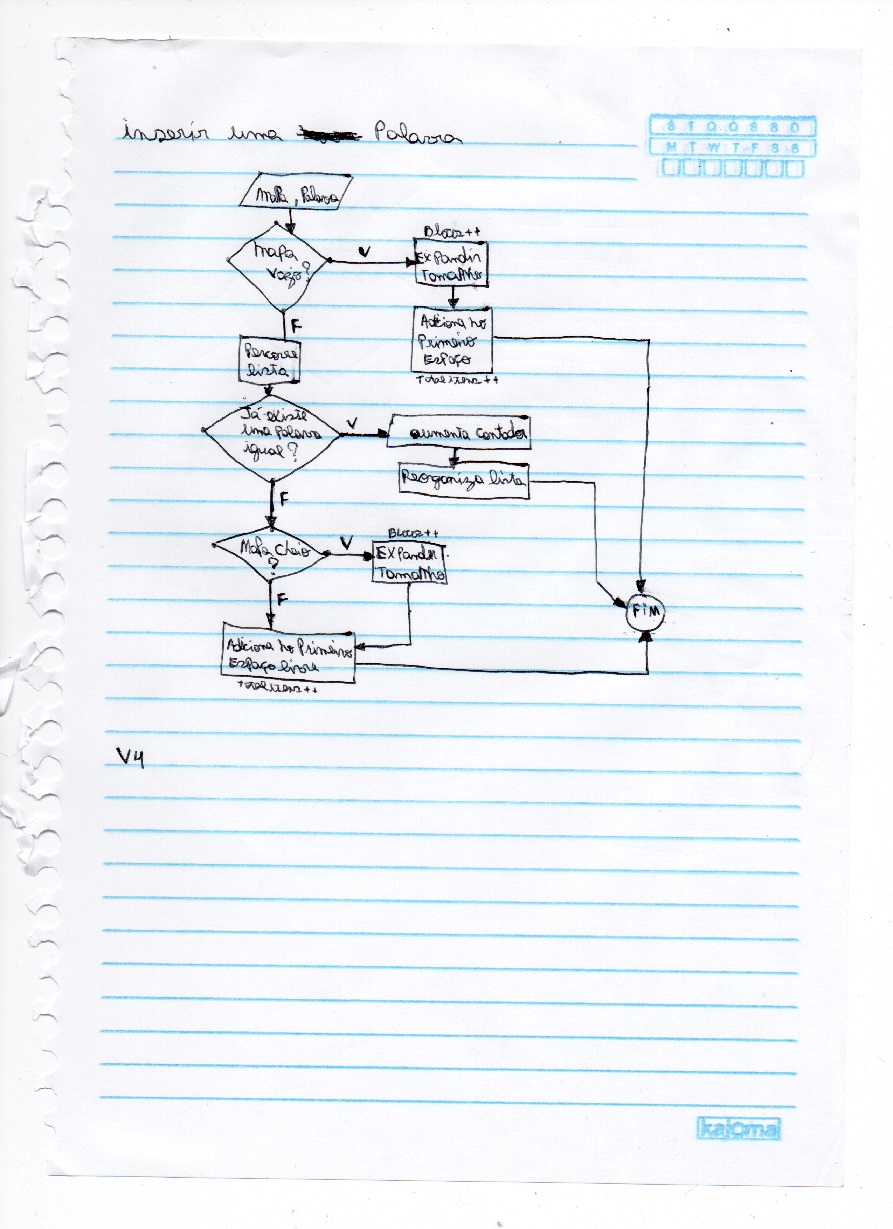 inserir uma Palavra
S T Q Q S S D
M T W T F S S
MaPa, Palavra
Mapa
Vazio?
V
Blocos++
EXPandir
Tamanho
F
Adiciona no
Primeiro
Espaço
Totalitens++
Percorre
lista
Já existe
uma Palavra
igual?
V
aumenta contador
Reorganiza lista
F
Mapa cheio
?
V
Blocos++
EXPandir
Tamanho
F
FIM
Adiciona no Primeiro
Espaço livre
totalitens++
V4
kajoma